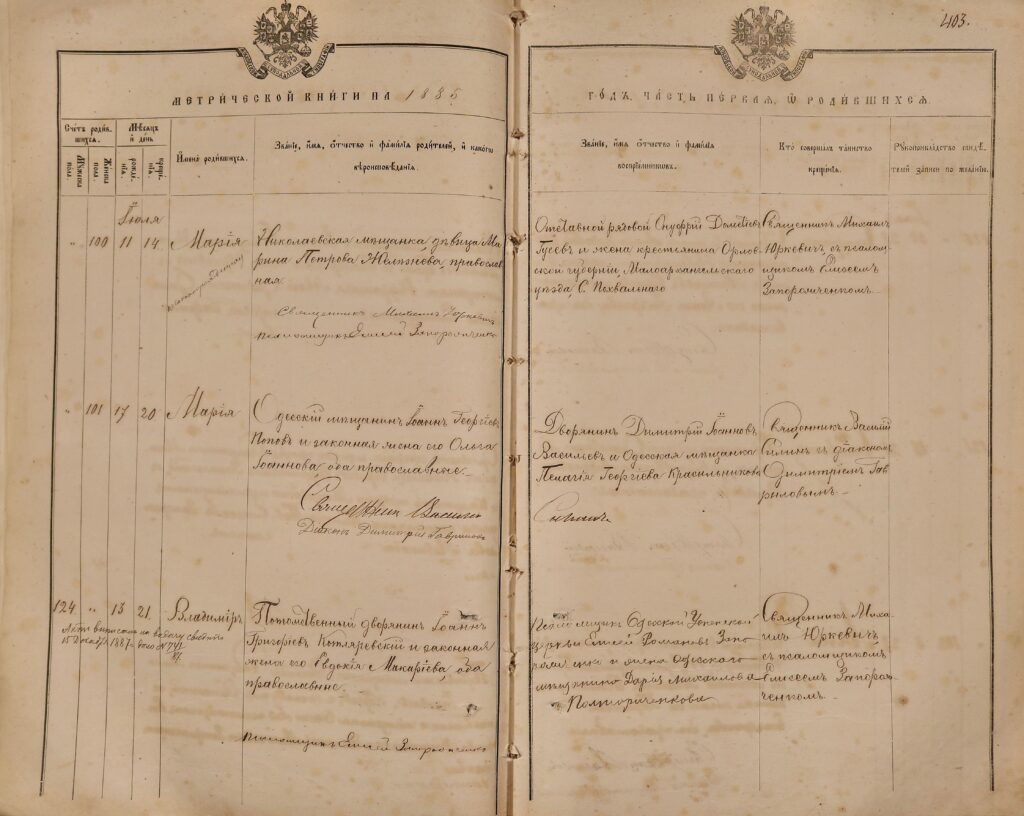 403.
МЕТРИЧЕСКОЙ КНИГИ НА 1885
ГОДЪ, ЧАСТЬ ПЕРВАЯ, Ѡ РОДИВШИХСЯ.
Счетъ родив-
шихся.
Мужеска
пола
Женска
пола
Мѣсяцъ
и день
рожде-
нія.
креще-
нія.
Имена родившихся.
Званіе, имя, отчество и фамилія родителей, и какого
вѣроисповѣданія.
Званіе, имя, отчество и фамилія
воспріемниковъ.
Кто совершалъ таинство
крещенія.
Рукоприкладство свидѣ-
телей записи по желанію.
Іюля
" 100 11 14 Марія
незаконнорожденная
Николаевская мѣщанка, дѣвица Ма-
рина Петрова Желѣзнева, православ-
ная
Священникъ Михаилъ Юркевичъ
Псаломщикъ Елисей Запорожченко
Отставной рядовой Онуфрій Дометіевъ
Гусевъ и жена крестьянина Орлов-
ской губерніи, Малоархангельскаго
уѣзда, С. Похвальнаго
Священникъ Михаилъ
Юркевичъ, съ псалом-
щикомъ Елисеемъ
Запорожченкомъ.
" 101 17 20 Марія
Одесскій мѣщанинъ Іоаннъ Георгіевъ
Поповъ и законная жена его Ольга
Іоаннова оба православные.
Священникъ Василій
Діаконъ Димитрій Гавриловъ
Дворянинъ Димитрій Іоанновъ
Васильевъ и Одесская мѣщанка
Пелагія Георгіева Красильникова
Священникъ Василій
съ діакономъ
Димитріемъ Гав-
риловымъ.
124 " 13 21 Владиміръ
15 1887
Потомственный дворянинъ Іоаннъ
Григоріевъ Котляревскій и законная
жена его Евдокія Макаріева, оба
православные.
Псаломщикъ Елисей Запорожченко
Псаломщикъ Одесской Успенской
церкви Елисей Романовъ Запо-
рожченко и жена Одесскаго
мѣщанина Дарія Михаилова
Священникъ Миха-
илъ Юркевичъ,
съ псаломщикомъ
Елисеемъ Запорож-
ченкомъ.